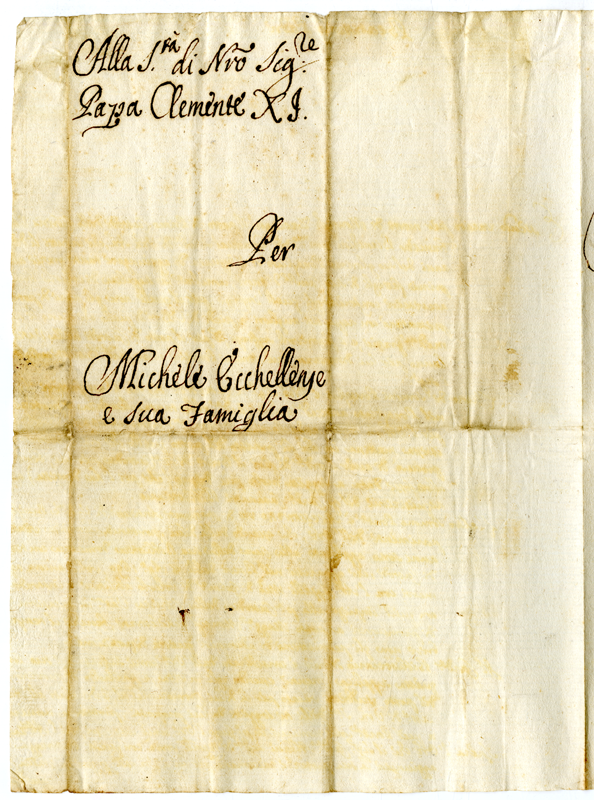 Alla S.tà di Nrõ Sig.re
Papa Clemente XI.
Per
Michele Ecchellense
e sua Famiglia